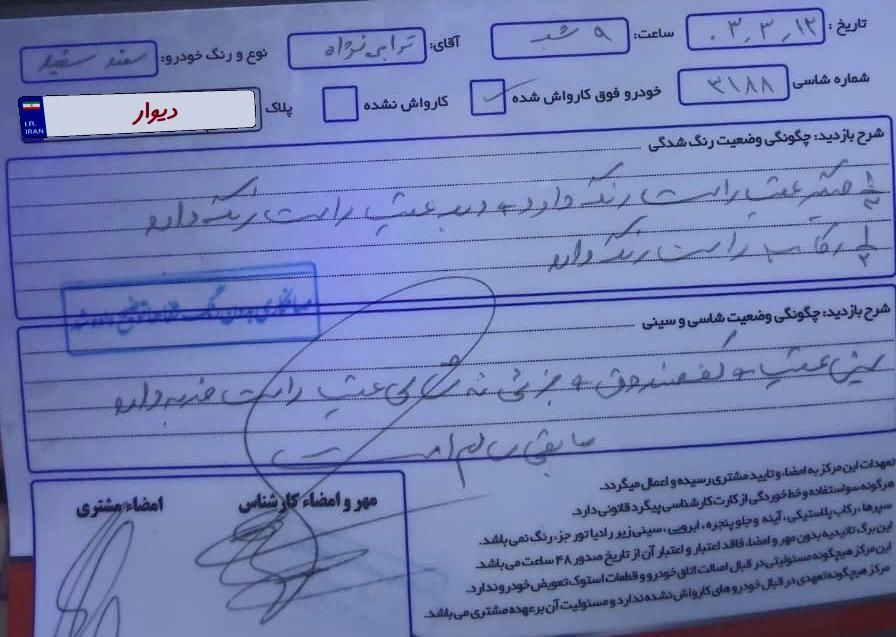 تاریخ: ۰۳,۳,۱۲ ساعت: ۹ شب آقای: ترابی نژاد نوع و رنگ خودرو: سمند سفید
شماره شاسی ۳۱۸۸ خودرو فوق کارواش شده ✓ کارواش نشده پلاک دیوار
I.R.
IRAN
شرح بازدید: چگونگی وضعیت رنگ شدگی
گلگیر عقب راست رنگ دارد و درب عقب راست رنگ دارد
۱/۲ رکاب راست رنگ دارد
شرح بازدید: چگونگی وضعیت شاسی و سینی
سینی عقب و کف صندوق و جزئی ته شاسی عقب راست ضربه دارد
مابقی سالم است
تعهدات این مرکز به امضاء و تایید مشتری رسیده و اعمال میگردد.
هرگونه سواستفاده و خط خوردگی از کارت کارشناسی پیگرد قانونی دارد.
سپرها، رکاب پلاستیکی، آینه و جلو پنجره، ابرویی، سینی زیر رادیاتور جز، رنگ نمی باشد.
این برگ تائیدیه بدون مهر و امضا، فاقد اعتبار و اعتبار آن از تاریخ صدور ۴۸ ساعت می باشد.
این مرکز هیچگونه مسئولیتی در قبال اصالت اتاق خودرو و قطعات استوک تعویض خودرو ندارد.
مرکز هیچگونه تعهدی در قبال خودرو های کارواش نشده ندارد و مسئولیت آن بر عهده مشتری می باشد.
مهر و امضاء کارشناس
امضاء مشتری